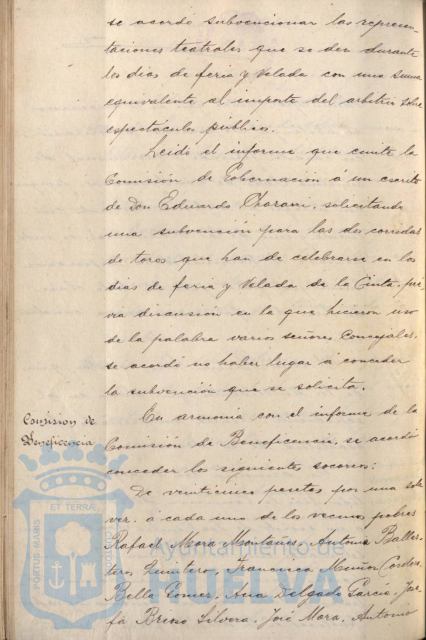 se acordó subvencionar las represen-
taciones teatrales que se den durante
los dias de feria y Velada con una suma
equivalente al importe del arbitrio sobre
espectaculos públicos.
Leido el informe que emite la
Comisión de Gobernación á un escrito
de Don Eduardo Charani, solicitando
una subvención para las dos corridas
de toros que han de celebrarse en los
dias de feria y Velada de la Cinta, pré-
via discusión en la que hicieron uso
de la palabra varios señores Concejales,
se acordó no haber lugar á conceder
la subvención que se solicita.
Comision de
Beneficencia
En armonia con el informe de la
Comisión de Beneficencia, se acordó
conceder los siguientes socorros:
De veinticinco pesetas por una sola
vez, á cada uno de los vecinos pobres
Rafael Mora Montanes, Antonia Balles-
tero Quintero, Francisca Muñoz
Bella Gomez, Ana Delgado Garcia, Jose-
fa Breno Silvera, José Mora, Antonio
PORTUS MARIS
ET TERRÆ
CUSTODIA
Ayuntamiento de
HUELVA